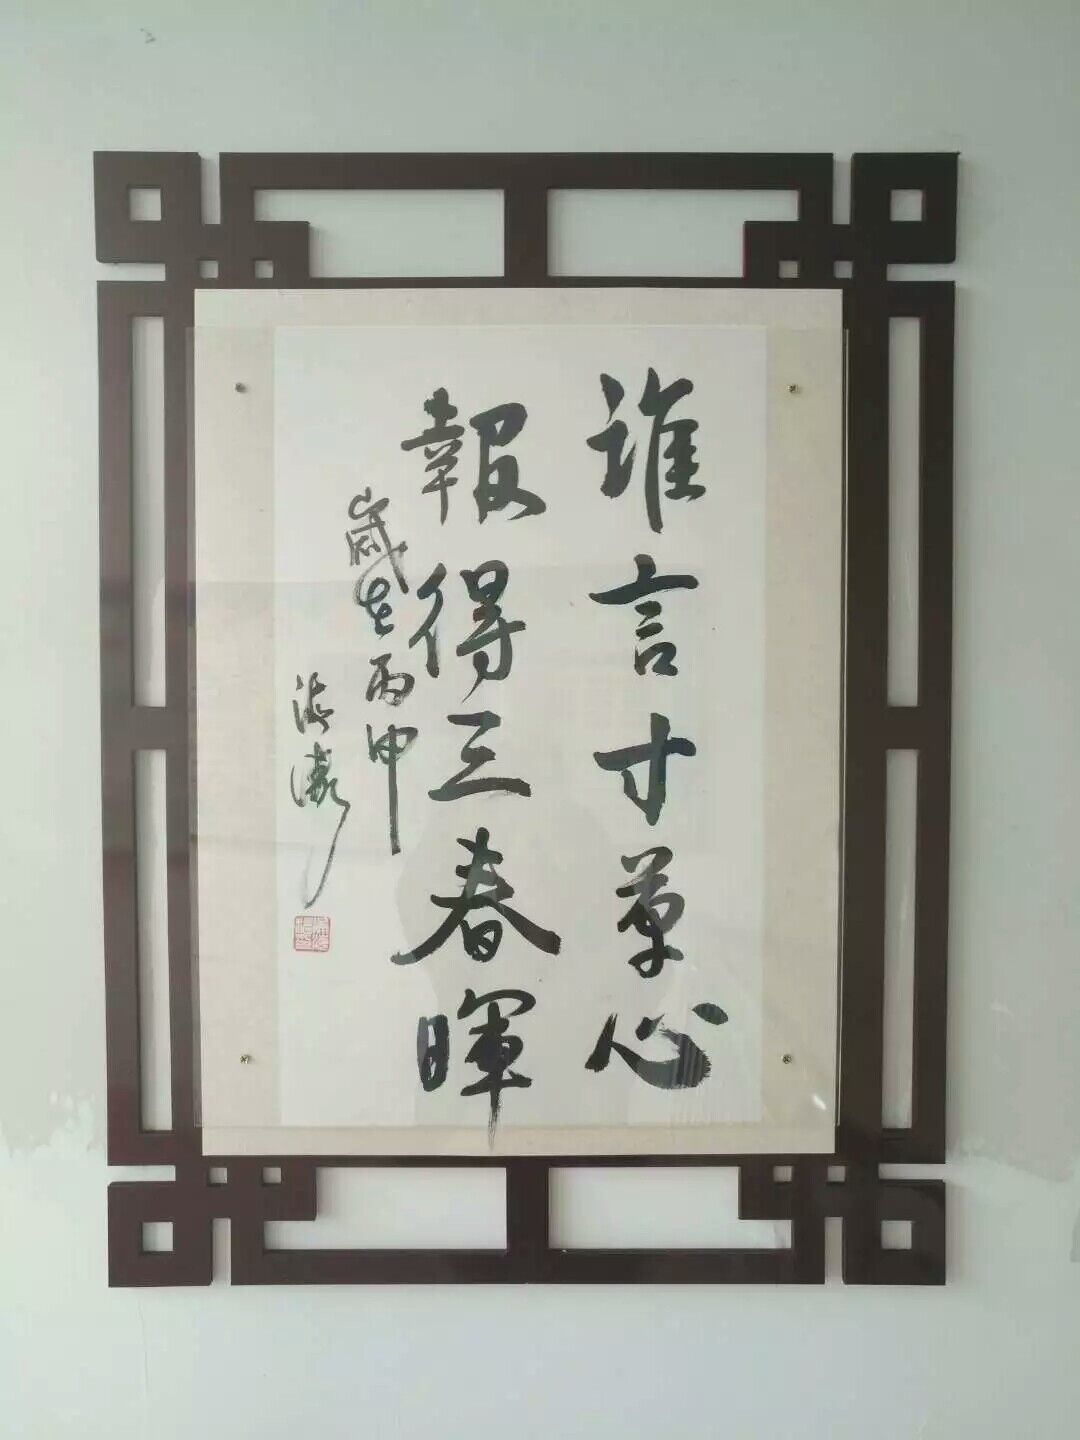 誰言寸草心
報得三春暉
歲在丙申